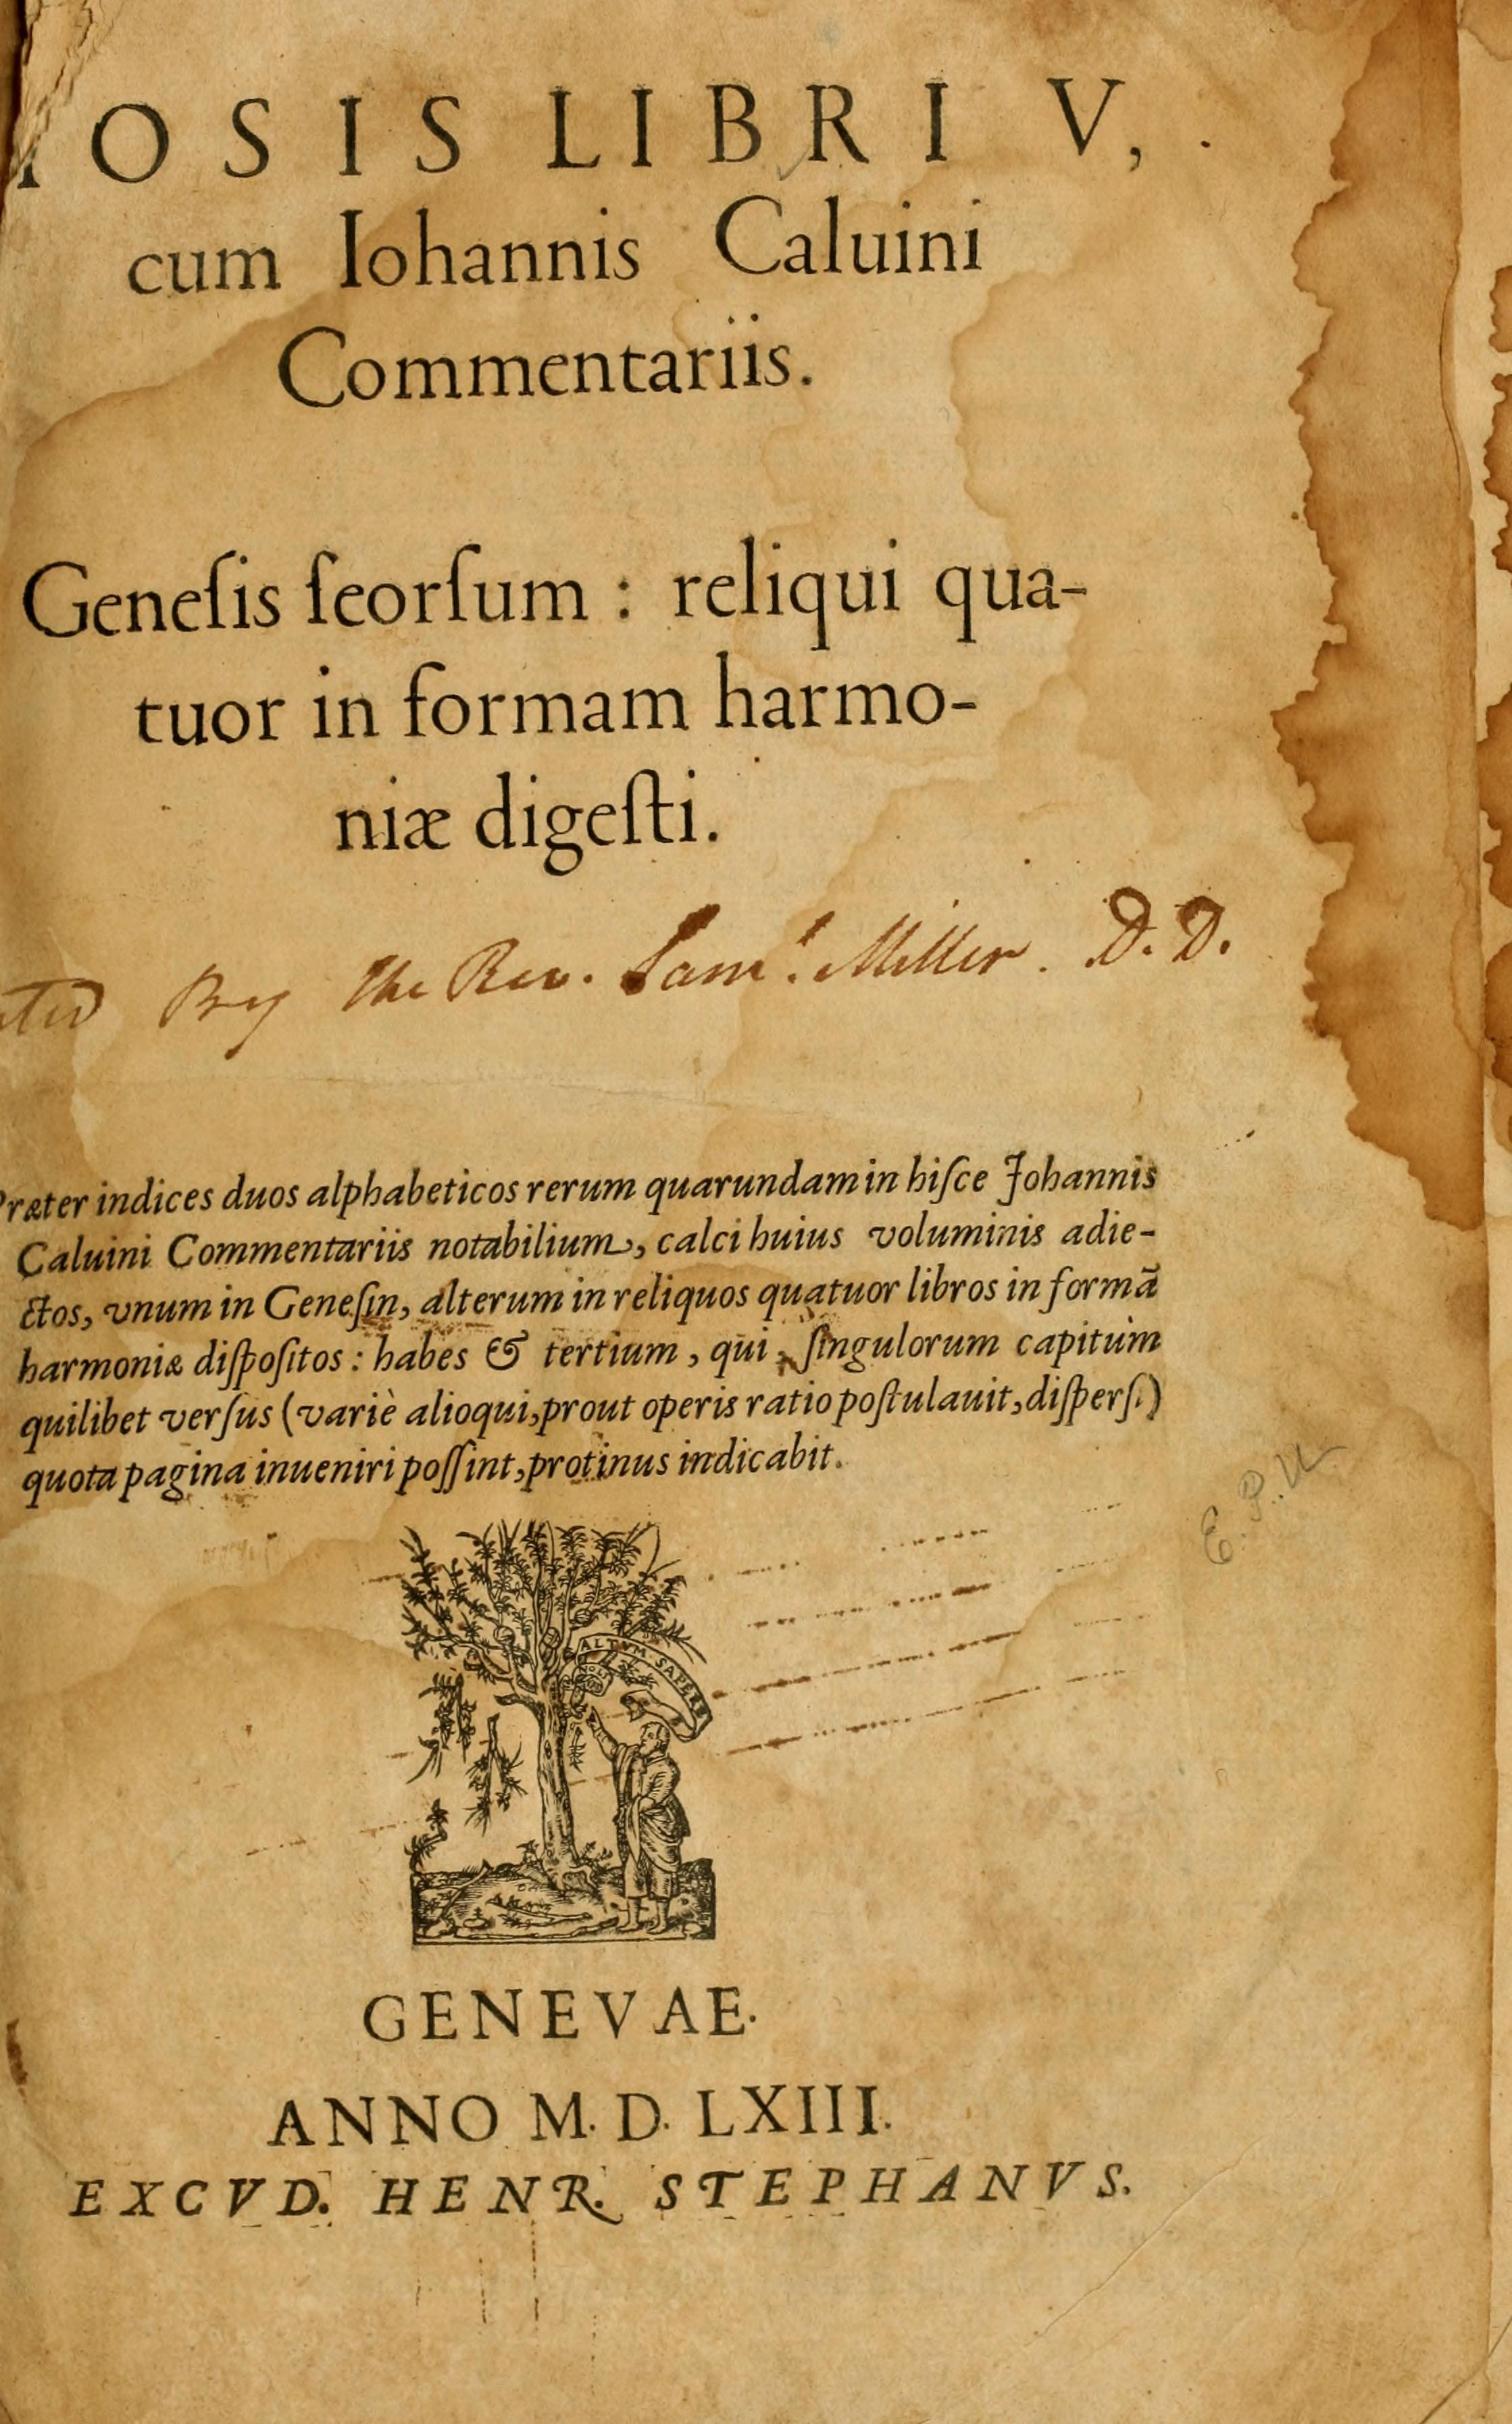 MOSIS LIBRI V,
cum Iohannis Caluini
Commentariis.
Geneſis ſeorſum : reliqui qua-
tuor in formam harmo-
niæ digeſti.
By the Rev. Saml. Miller. D. D.
Præter indices duos alphabeticos rerum quarundam in hiſce Johannis
Caluini Commentariis notabilium, calci huius voluminis adie-
ctos, vnum in Geneſin, alterum in reliquos quatuor libros in formā
harmoniæ diſpoſitos : habes & tertium, qui, ſingulorum capitum
quilibet verſus (variè alioqui, prout operis ratio poſtulauit, diſperſi)
quota pagina inueniri poſſint, protinus indicabit.
NOLI
ALTVM SAPERE
GENEVAE.
ANNO M. D. LXIII.
EXCVD. HENR. STEPHANVS.